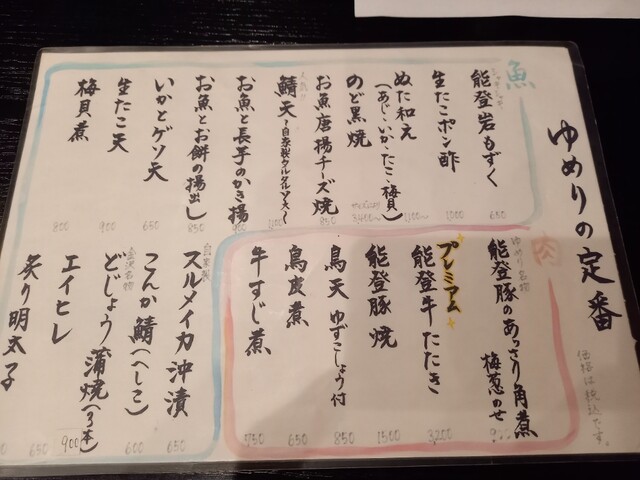 ゆめりの定番
価格は税込です。
魚
能登岩もずく
650
生たこポン酢
1000
ぬた和え
(あじ・いか・たこ・梅貝)
1100~
のど黒焼
3400~
お魚唐揚チーズ焼
850
鯖天~自家製タルタルソース~
1100
お魚と長芋のかき揚
900
お魚とお餅の揚出し
850
いかとゲソ天
650
生たこ天
900
梅貝煮
800
自家製
スルメイカ沖漬
650
こんか鯖(へしこ)
600
金沢名物
どじょう蒲焼(3本)
900
エイヒレ
650
炙り明太子
肉
ゆめり名物
能登豚のあっさり角煮
梅葱のせ
プレミアム
能登牛たたき
3200
能登豚焼
1500
鳥天ゆずこしょう付
850
鳥皮煮
650
牛すじ煮
750